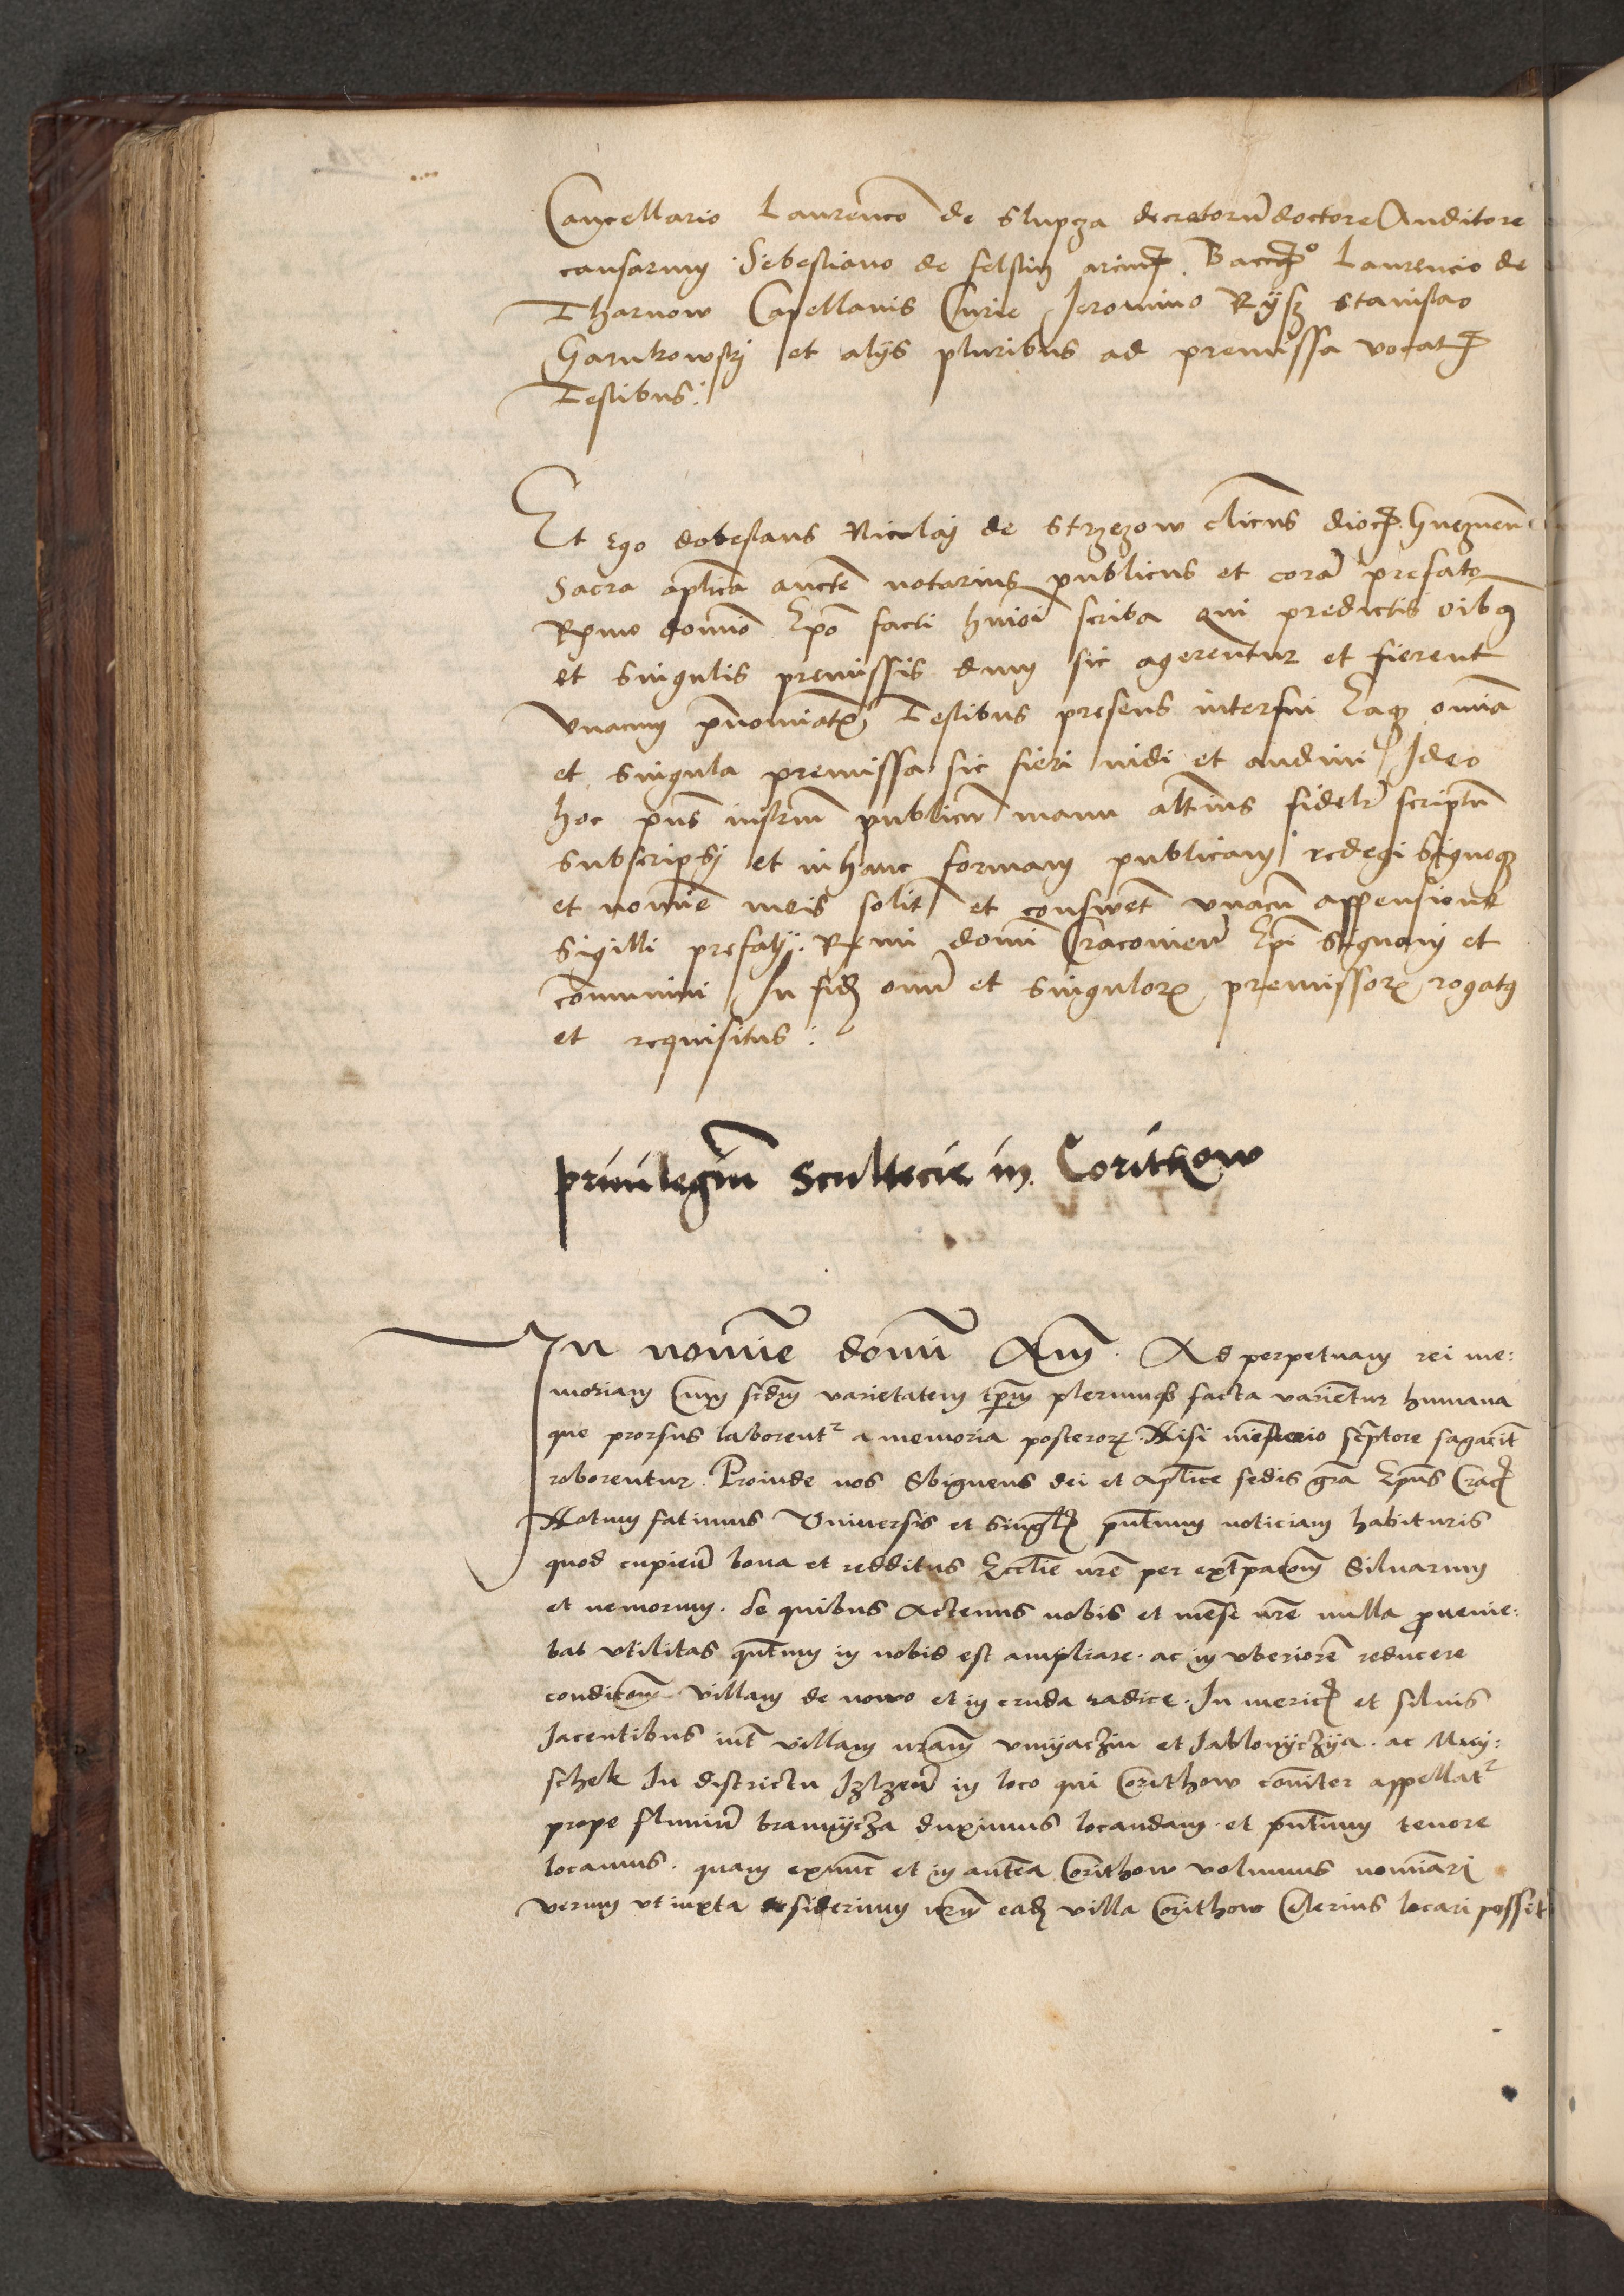 Cancellario Laurencio de Slupcza decretorũ doctore Auditore
causarum Sebestiano de felstin arciũ Bacc⁰ Laurencio de
Tharnow Capellanis Curie Jeronimo Rÿsz Stanislao
Garnkowskj et alÿs pluribus ad premissa vocat
Testibus:
Et Ego dobeslaus Nicolaj de Strzezow clicus dioc Gneznen
Sacra aplica aucte notarius publicus et cora prefato
Rx̃mo domio Epo facti huioi scriba Qui predictis oibꝫ
et singulis premissis dum sic agerentur et fierent
Vnacum pnomiatꝭ Testibus presens interfui Eaqꝫ omia
et singula premissa sic fieri uidi et audiui Ideo
hoc pns instrm publicũ manu altius fidelr scriptũ
subscripsj et in hanc formam publicam redegi Signoqꝫ
et nomie meis solit et consuet vnacũ appensione
Sigilli prefatj Rx̃mi domi Cracouien Epi Signauj et
communiui In fidẽ oim et singuloꝝ premissoꝝ rogatꝰ
et requisitus:
priuilegiũ Scultecie in Corithow
In nomie domi Am̃. Ad perpetuam rei me:
moriam Cum scdm varietatem tp̃m plerumqꝫ facta varientur humana
que prorsus laborentᷣ a memoria posteroꝝ Nisi misterio scptore sagacit
roborentur. Proinde nos Sbigneus dei et aplice sedis gra Epus Crac
Notum facimus Vniuersis et singlꝭ pntium noticiam habituris
quod cupien bona et redditus Ecclie nre per extpacom̃ Siluarum
et nemorum. de quibus actenus nobis et mense nre nulla ꝓuenie:
bat vtilitas qntum in nobis est ampliare. ac in vberiorẽ reducere
condicom̃ villam de nowo et in cruda radice. In mericꝭ et siluis
Jacentibus int villam nram vmÿachin et Jablonÿczÿa. ac Mirÿ:
schek In districtu Izlzeñ in loco qui Corithow comiter appellatᷣ
prope fluuiũ bramÿcza duximus locandam. et pntium tenore
locamus. quam exnunc et in antea Corithow volumus nomiari
verum vt iuxta desiderium nrm eadẽ villa Corithow Celerius locari possit